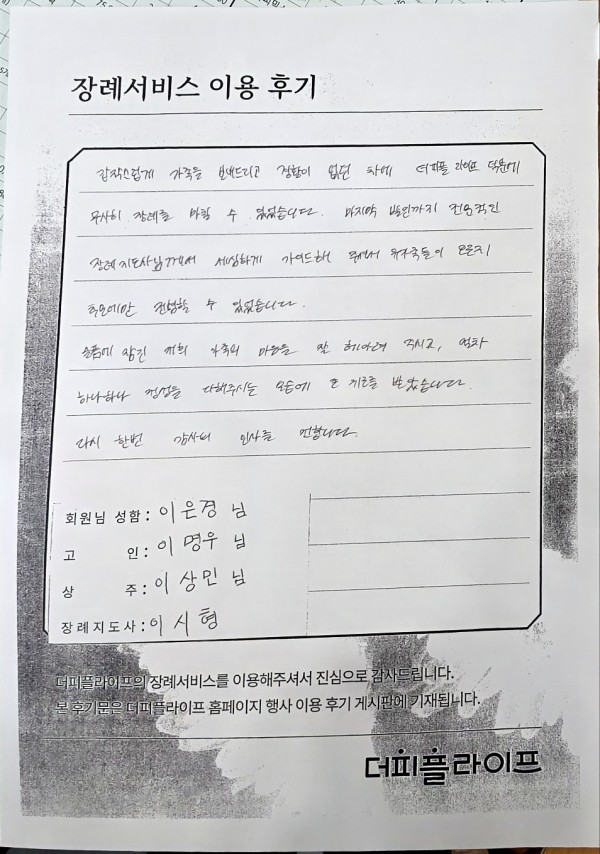 장례서비스 이용 후기
갑작스럽게 가족을 보내드리고 경황이 없던 차에 더피플 라이프 덕분에
무사히 장례를 마칠 수 있었습니다. 마지막 발인까지 전문적인
장례지도사님께서 세심하게 가이드해 주셔서 유가족들이 온전히
추모에만 전념할 수 있었습니다.
슬픔에 잠긴 저희 가족의 마음을 잘 헤아려 주시고, 절차
하나하나 정성을 다해주시는 모습에 큰 위로를 받았습니다.
다시 한번 감사의 인사를 전합니다.
회원님 성함 : 이은경 님
고 인 : 이명우 님
상 주 : 이상민 님
장례지도사 : 이시형
더피플라이프의 장례서비스를 이용해주셔서 진심으로 감사드립니다.
본 후기문은 더피플라이프 홈페이지 행사 이용 후기 게시판에 기재됩니다.
더피플라이프